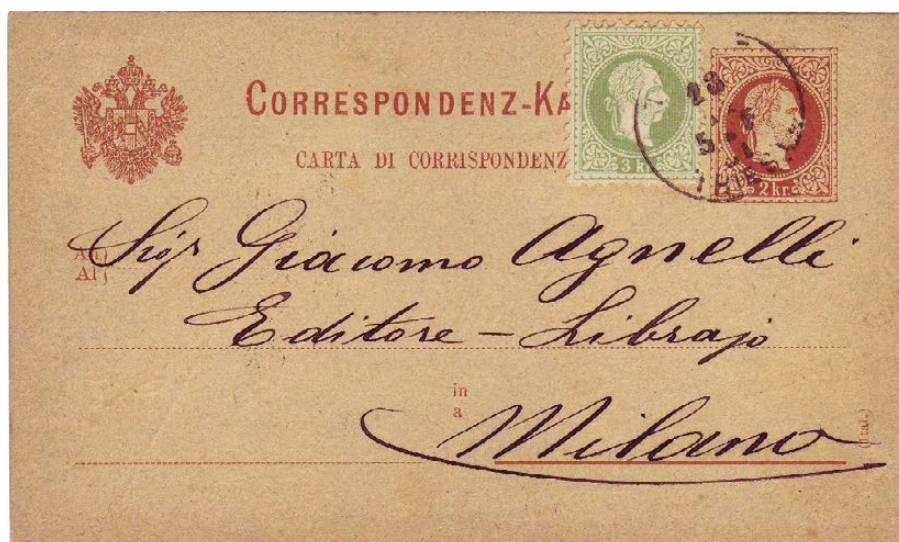 CORRESPONDENZ-KA
CARTA DI CORRISPONDENZ
3 kr
2 kr.
18
5
An
Al
Sigr Giacomo Agnelli
Editore - Librajo
in
a
Milano
(Ital.)